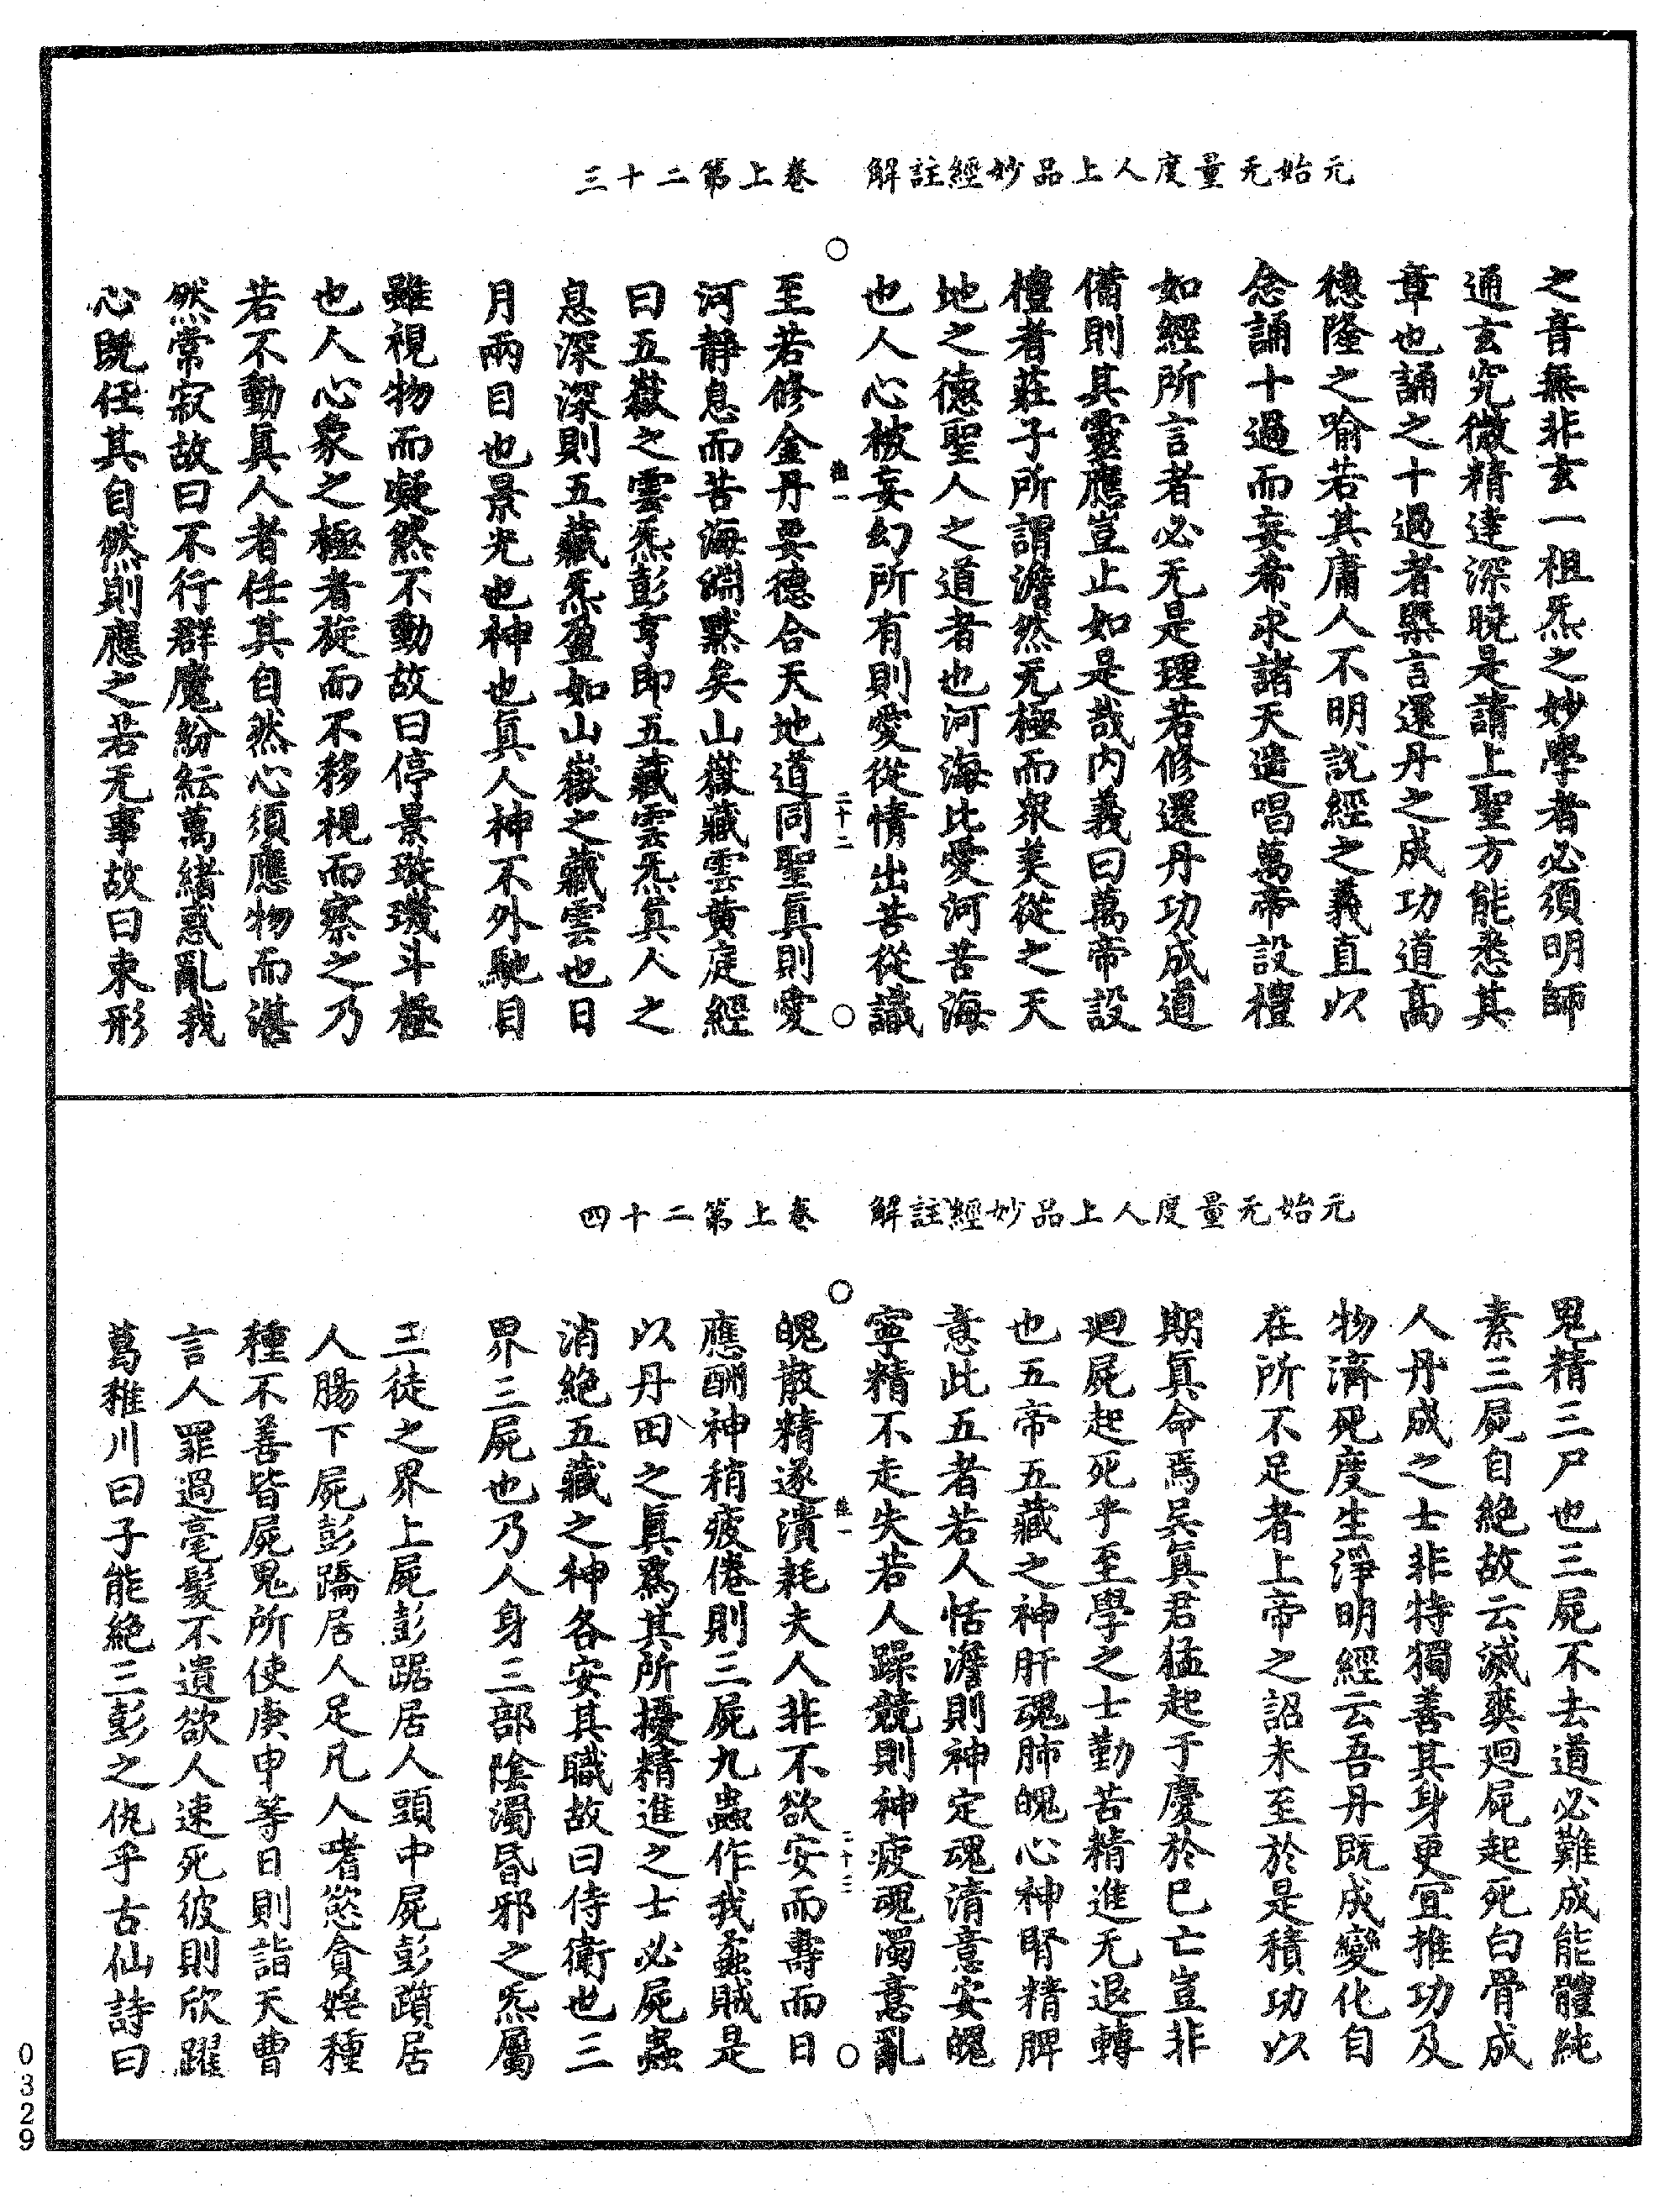 元始无量度人上品妙經註解 卷上第二十三
之音無非玄一祖炁之妙學者必須明師
通玄究微精達深曉是請上聖方能悉其
章也誦之十過者槩言還丹之成功道高
德隆之喻若其庸人不明說經之義直以
念誦十過而妄希求諸天遥唱萬帝設禮
如經所言者必无是理若修還丹功成道
備則其靈應豈止如是哉內義曰萬帝設
禮者莊子所謂澹然无極而衆美從之天
地之德聖人之道者也河海比愛河苦海
也人心被妄幻所有則愛從情出苦從識
二十二
至若修金丹要德合天地道同聖眞則愛
河靜息而苦海淵默矣山嶽藏雲黃庭經
曰五嶽之雲炁彭亨即五藏雲炁眞人之
息深深則五藏炁盈如山嶽之藏雲也日
月兩目也景光也神也眞人神不外馳目
雖視物而凝然不動故曰停景璇璣斗極
也人心象之極者旋而不移視而察之乃
若不動眞人者任其自然心須應物而湛
然常寂故曰不行群魔紛紜萬緒惑亂我
心既任其自然則應之若无事故曰束形
元始无量度人上品妙經註解 卷上第二十四
鬼精三尸也三屍不去道必難成能體純
素三屍自絕故云滅爽迴屍起死白骨成
人丹成之士非特獨善其身更宜推功及
物濟死度生淨明經云吾丹既成變化自
在所不足者上帝之詔未至於是積功以
期眞命焉吳眞君猛起于慶於巳亡豈非
迴屍起死乎至學之士勤苦精進无退轉
也五帝五藏之神肝魂肺魄心神腎精脾
意此五者若人恬澹則神定魂清意安魄
寧精不走失若人躁競則神疲魂濁意亂
二十三
魄散精遂潰耗夫人非不欲安而壽而日
應酬神稍疲倦則三屍九蟲作我蟊賊是
以丹田之眞爲其所擾精進之士必屍蟲
消絕五藏之神各安其職故曰侍衛也三
界三屍也乃人身三部陰濁昏邪之炁屬
三徒之界上屍彭踞居人頭中屍彭躓居
人腸下屍彭蹻居人足凡人嗜慾貪婬種
種不善皆屍鬼所使庚申等日則詣天曹
言人罪過毫髮不遺欲人速死彼則欣躍
葛稚川曰子能絕三彭之仇乎古仙詩曰
0329